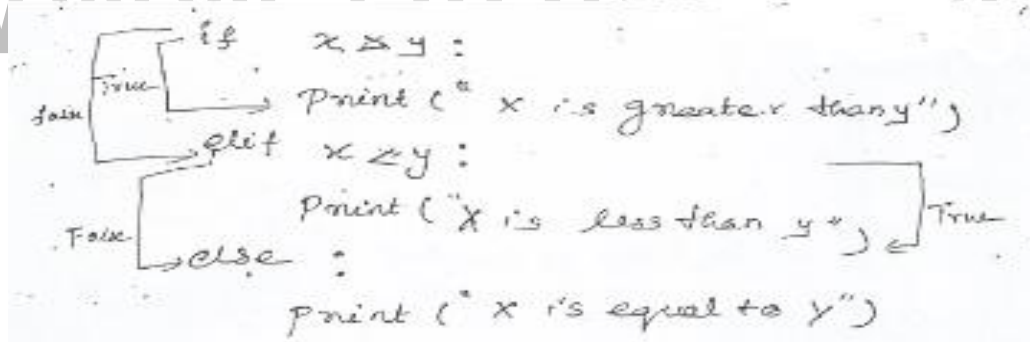 if x > y :
True
print (" x is greater than y")
false
elif x < y :
print ("x is less than y")
True
False
else :
print (" x is equal to y")